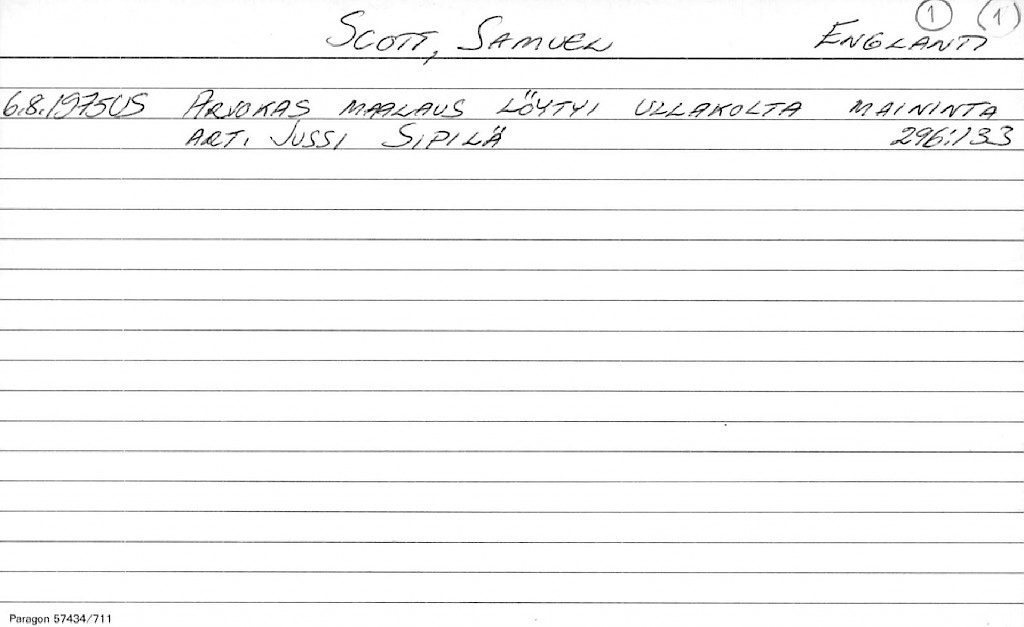 Scott, Samuel Englanti 1 1
6.8.1975 US Arvokas maalaus löytyi ullakolta maininta
art. Jussi Sipilä 296:133
Paragon 57434/711